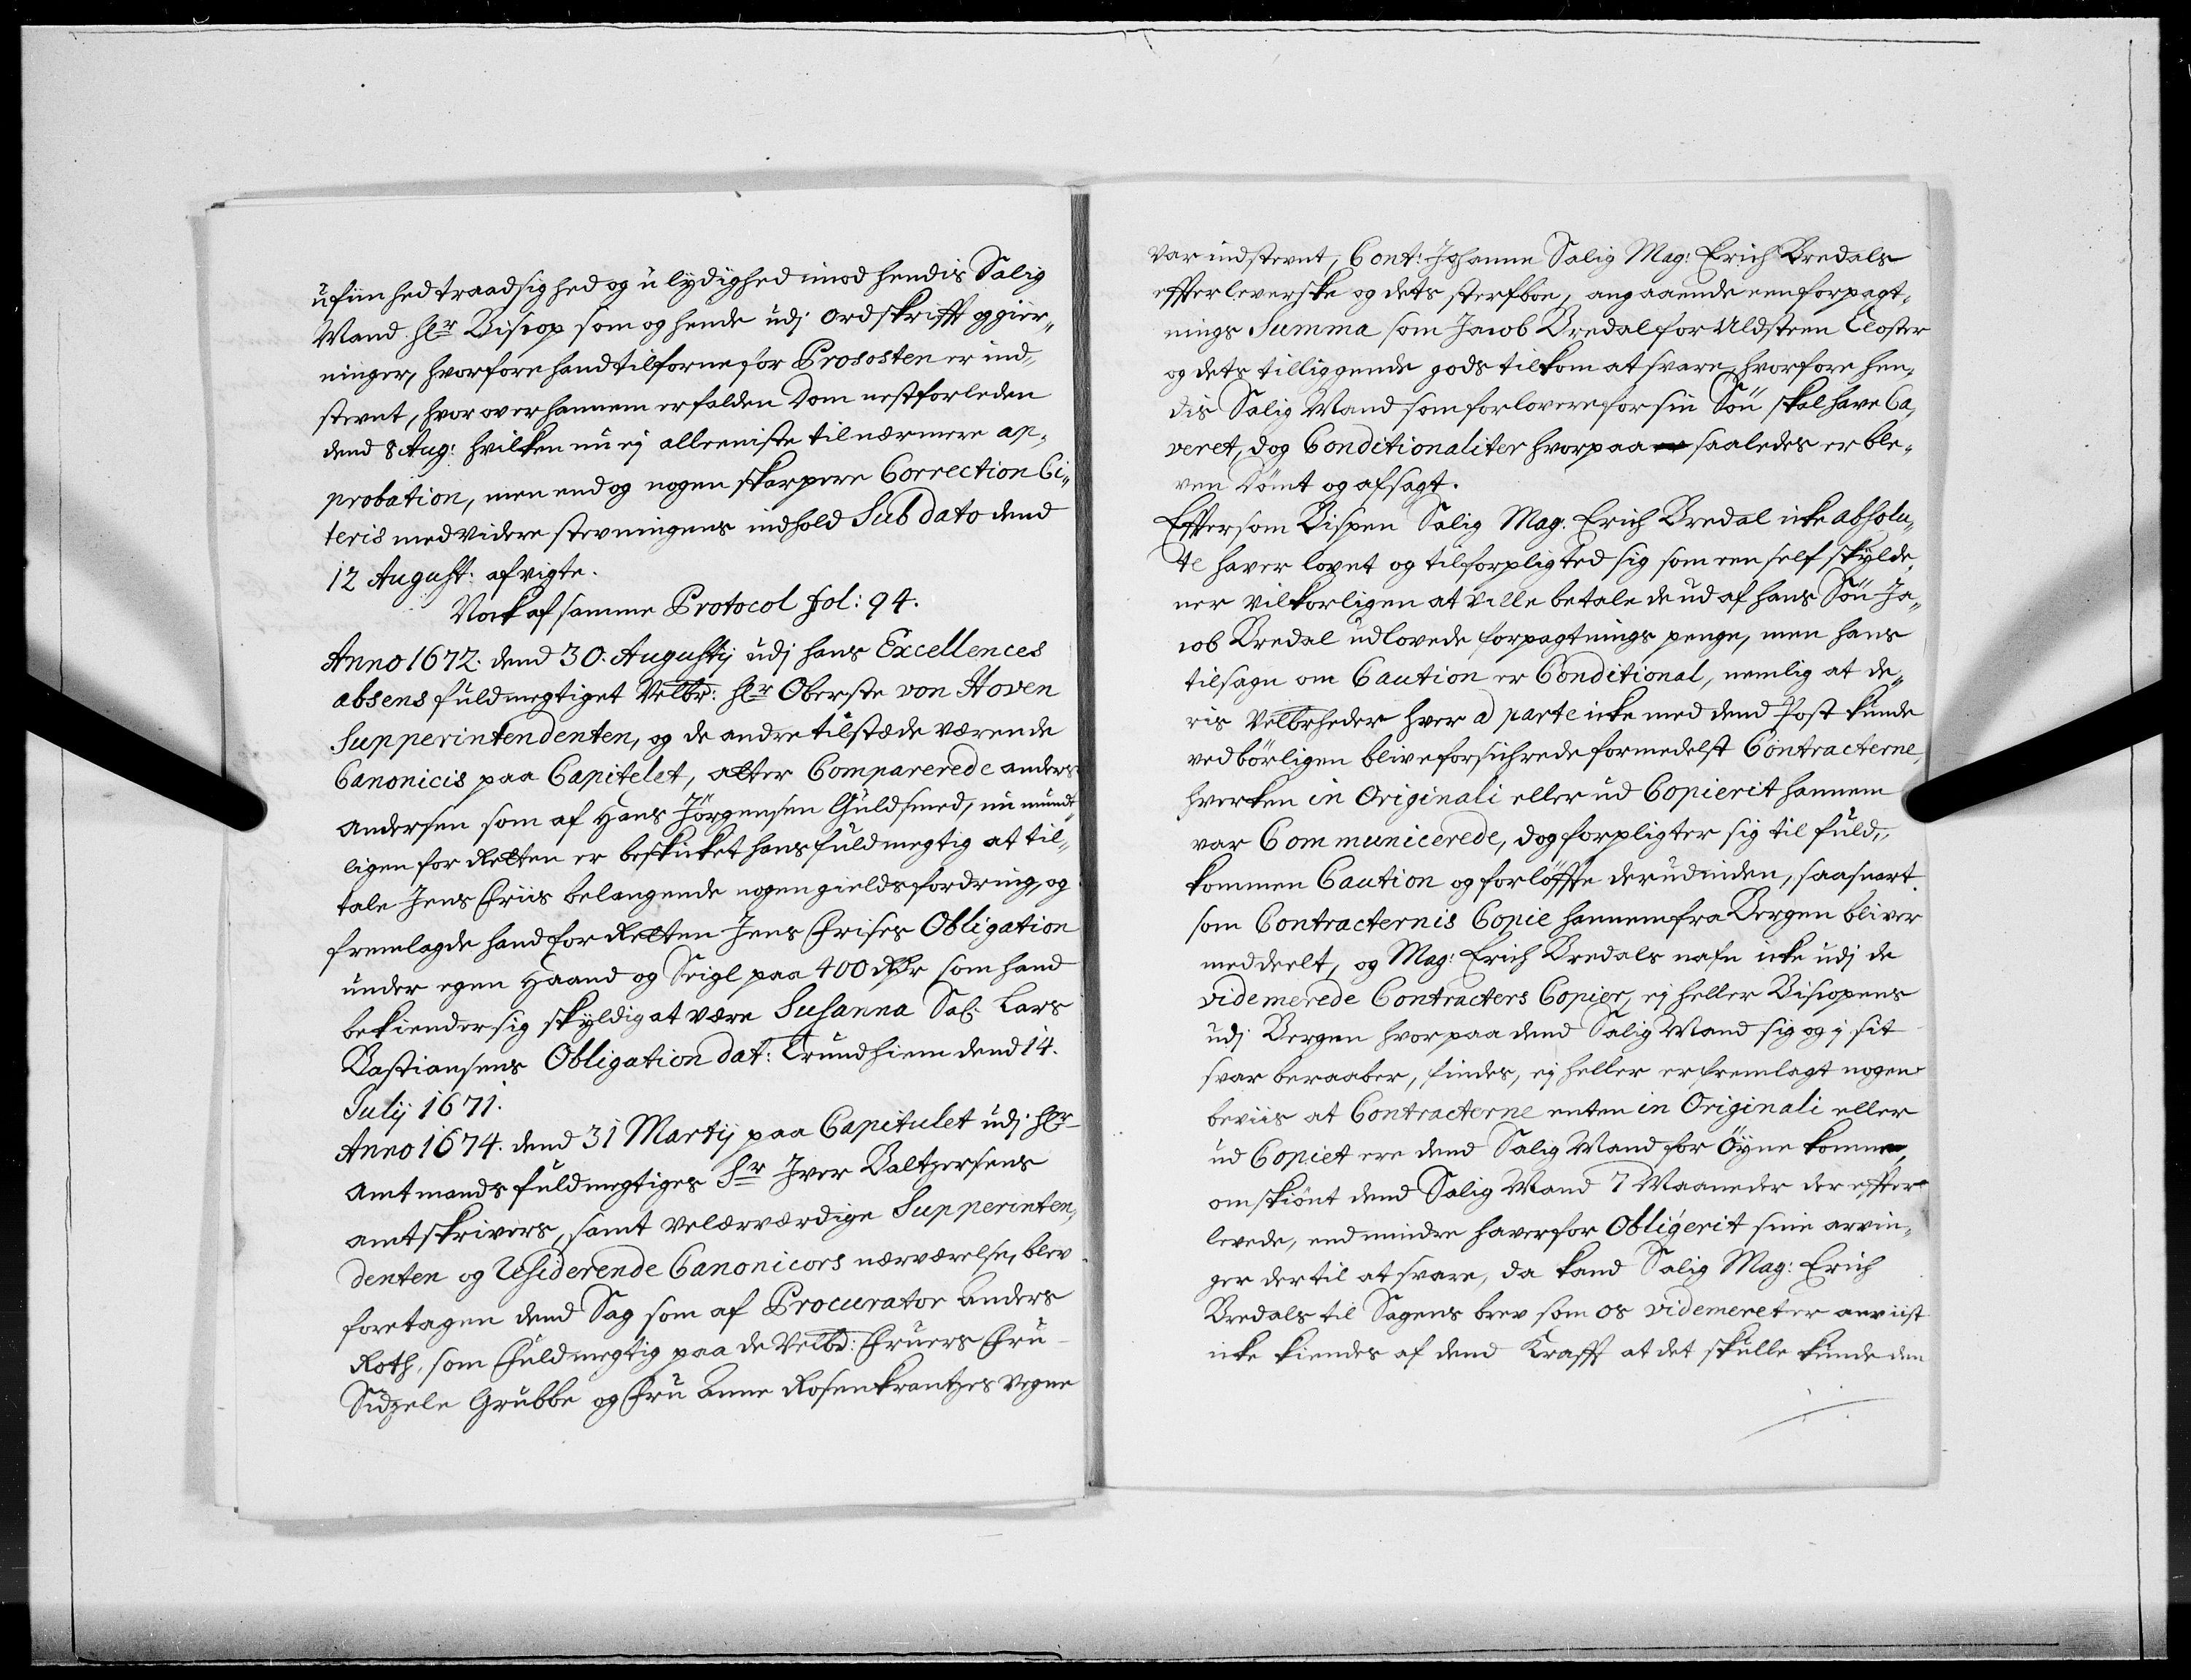 ufiinhed traadsighed og ulydighed imod hendis Salig
Mand hlr Biscop som og hende udj ord skrifft og gier„
ninger, hvorfore hand tilforne for Prososten er ind„
stevnt, hvor over hannem er falden Dom nestforleden
dend 8 Aug: hvilken nu ej alleeniste til nærmere ap„
probation, men end og nogen skarpere Correction Ci„
teris med videre stevningens indhold Sub dato dend
12 August: afvigte.
Nock af samme Protocol fol: 94.
Anno 1672. dend 30. Augustij udj hans Excellences
absens fuldmegtiget Velbr: hlr Oberste von Hoven
Supperintendenten, og de andre tilstæde værende
Canonicis paa Capitelet, atter Comparerede anders
Andersen som af Hans Jörgensen Guldsmed, nu mundt„
ligen for Retten er beskicket hans fuldmegtig at til„
tale Jens Friis belangende nogen gieldsfordring, og
fremlagde hand for Retten Jens Frises Obligation
under egen Haand og Seigl paa 400 Rdr som hand
bekiender sig skyldig at være Susanna Sal: Lars
Bastiansens Obligation dat: Trundhiem dend 14.
Julij 1671.
Anno 1674. dend 31 Martij paa Capitulet udj hlr
Amtmands fuldmegtiges Sr Iver Baltzersens
amtskrivers, samt velærværdige Supperinten„
denten og Residerende Canonicors nærværelse, blev
foretagen dend Sag som af Procurator Anders
Roth, som Fuldmegtig paa de Velbd: Fruers Fru
Sidzele Grubbe og Fru Anne Rosenkrantzes vegne
var indstevnt, Cont: Johanne Salig Mag: Erich Bredals
effterleverske og dets sterfboe, angaaende een forpagt„
nings Summa som Jacob Bredal for Uldsteen Closter
og dets tilliggende gods tilkom at svare, hvorfore hen„
dis Salig Mand som forlovere for sin Sön skal have Ca„
veret, dog Conditionaliter hvorpaa saaledes er ble„
ven Dömt og afsagt.
Effersom Bispen Salig Mag: Erich Bredal icke absolu„
te haver lovet og tilforpligted sig som een self skylde„
ner vilkorligen at ville betale de ud af hans Sön Ja„
cob Bredal udlovede forpagtnings penge, men hans
tilsagn om Caution er Conditional, nemlig at de„
ris Velbrheder hver a parte icke med dend Post kunde
vedbörligen blive forsichrede formedelst Contracterne,
hverken in Originali eller ud Copierit hannem
var Communicerede, dog forpligter sig til fuld„
kommen Caution og forlöffte derudinden, saasnart
som Contracternis Copie hannem fra Bergen bliver
meddeelt, og Mag: Erich Bredals nafn icke udj de
videmerede Contracters Copier, ej heller Biscopens
udj Bergen hvorpaa dend Salig Mand sig og j sit
svar beraaber, findes, ej heller er fremlagt nogen
beviis at Contracterne enten in Originali eller
ud Copiet ere dend Salig Mand for Öyne komme,
omskiönt dend Salig Mand 7 Maaneder der effter
levede, end mindre haver for Obligerit sine arvin„
ger dertil at svare, da kand Salig Mag: Erich
Bredals til Sagens brev som os videmeret er anviist
icke kiendes af dend Krafft at det skulle kunde den